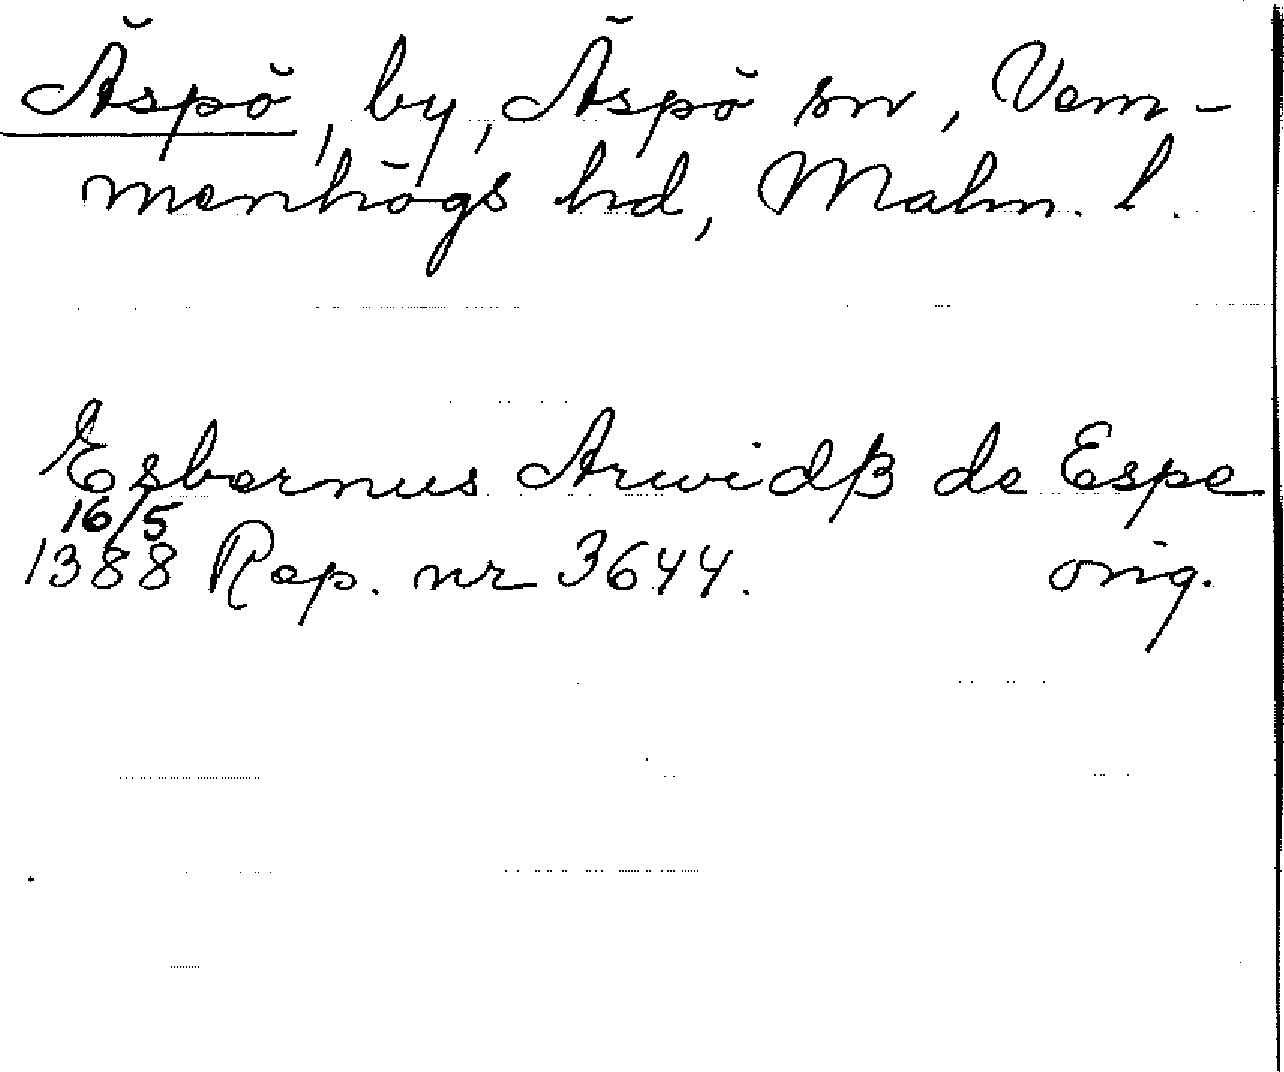 Äspö, by, Äspö sn, Vem-
menhögs hd, Malm. l.
Esbernus Arwidß de Espe
16/5
1388 Rep. nr 3644. orig.